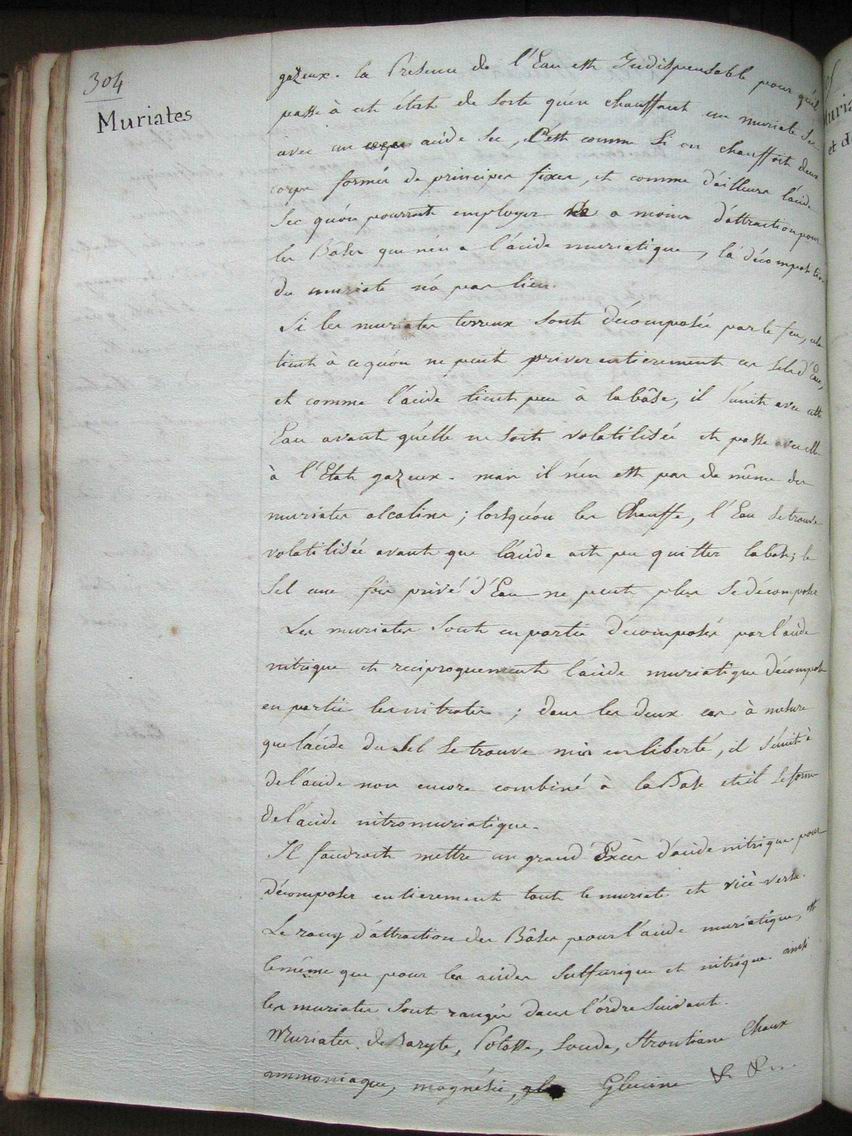 304
Muriates
gazeux. la Presence de l'Eau est Indispensable pour qu'il
passe à cet état de sorte qu'en chauffant un muriate Sec
avec un acide Sec, C'est comme Si on chauffoit deux
corps formés de principes fixes, et comme d'ailleurs l'acide
Sec qu'on pourroit employer a moins d'attraction pour
les Bâses que n'en a l'acide muriatique, la décomposition
du muriate n'a pas lieu.
Si les muriates terreux Sont décomposés par le feu, cela
tient à ce qu'on ne peut priver entierement ces Sels d'Eau,
et comme l'acide tient peu à la bâse, il S'unit avec cette
Eau avant qu'elle ne Soit volatilisée et passe avec elle
à l'Etat gazeux. mais il n'en est pas de même des
muriates alcalins; lorsqu'on les Chauffe, l'Eau Se trouve
volatilisée avant que l'acide ait pu quitter la base; le
Sel une fois privé d'Eau ne peut plus Se décomposer
Les muriates Sont en partie décomposés par l'acide
nitrique et reciproquement l'acide muriatique décompose
en partie les nitrates; dans les deux cas à mesure
que l'acide du Sel Se trouve mis en liberté, il S'unit à
de l'acide non encore combiné à la Base et il Se forme
de l'acide nitromuriatique.
Il faudroit mettre un grand Excès d'acide nitrique pour
décomposer entierement tout le muriate et vice-versa.
Le rang d'attraction des Bâses pour l'acide muriatique, est
le même que pour les acides Sulfurique et nitrique. ainsi
les muriates Sont rangés dans l'ordre Suivant.
Muriates de Baryte, Potasse, Soude, Strontiane Chaux
ammoniaque, magnésie, Glucine & &...